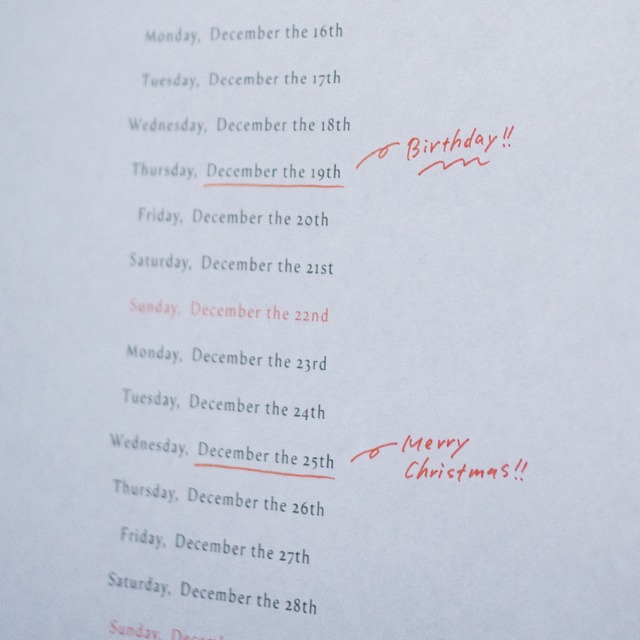 Monday, December the 16th
Tuesday, December the 17th
Wednesday, December the 18th
Thursday, December the 19th
Birthday!!
Friday, December the 20th
Saturday, December the 21st
Sunday, December the 22nd
Monday, December the 23rd
Tuesday, December the 24th
Wednesday, December the 25th
Merry
Christmas!!
Thursday, December the 26th
Friday, December the 27th
Saturday, December the 28th
Sunday,